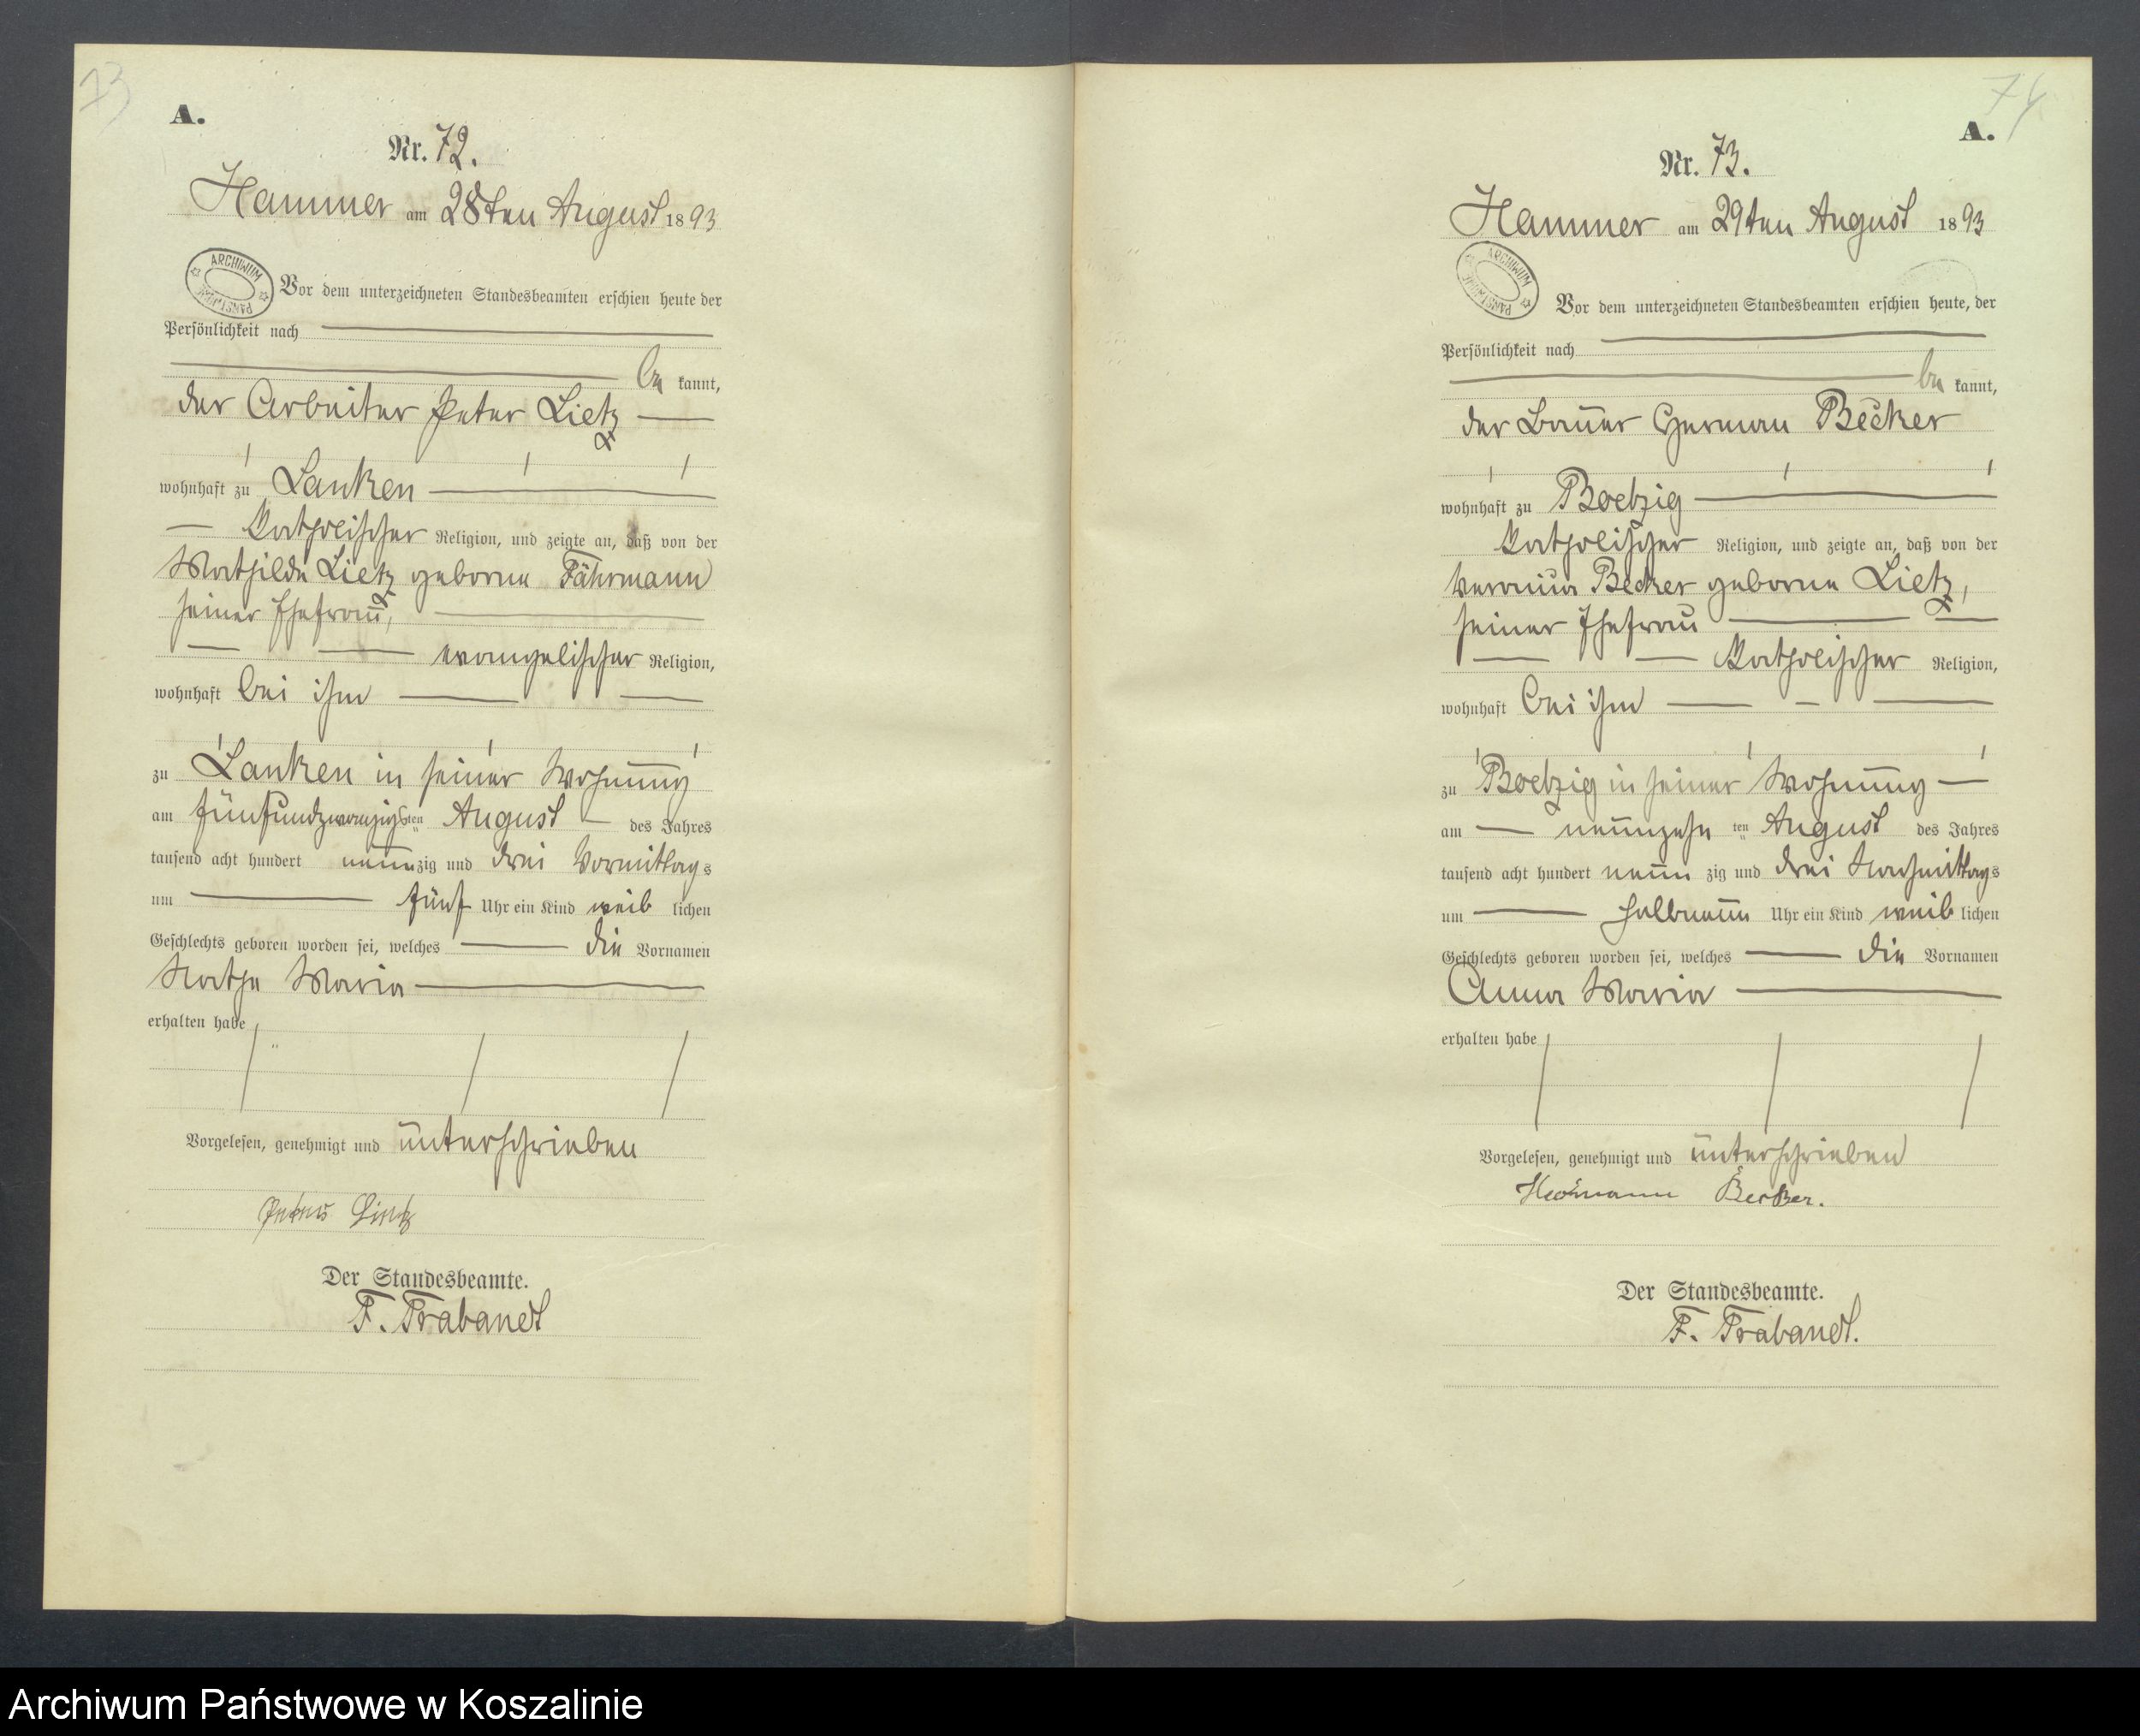 73
A.
Nr. 72.
Hammer am 28ten August 1893
ARCHIWUM PAŃSTWOWE
Vor dem unterzeichneten Standesbeamten erschien heute der
Persönlichkeit nach
be kannt,
der Arbeiter Peter Lietz
wohnhaft zu Lanken
katholischer Religion, und zeigte an, daß von der
Mathilde Lietz geborne Fährmann
seiner Ehefrau,
evangelischer Religion,
wohnhaft bei ihm
zu Lanken in seiner Wohnung
am fünfundzwanzigsten August des Jahres
tausend acht hundert neunzig und drei Vormittags
um fünf Uhr ein Kind weib lichen
Geschlechts geboren worden sei, welches die Vornamen
Maria
erhalten habe
Vorgelesen, genehmigt und unterschrieben
Der Standesbeamte.
F. Trabandt
74
A.
Nr. 73.
Hammer am 29ten August 1893
ARCHIWUM PAŃSTWOWE
Vor dem unterzeichneten Standesbeamten erschien heute, der
Persönlichkeit nach
be kannt,
der Bauer Herman Becker
wohnhaft zu Boetzig
katholischer Religion, und zeigte an, daß von der
Becker geborne Lietz,
seiner Ehefrau
katholischer Religion,
wohnhaft bei ihm
zu Boetzig in seiner Wohnung
am neunzehn ten August des Jahres
tausend acht hundert neun zig und drei Nachmittags
um halbneun Uhr ein Kind weib lichen
Geschlechts geboren worden sei, welches die Vornamen
Anna Maria
erhalten habe
Vorgelesen, genehmigt und unterschrieben
Hermann Becker.
Der Standesbeamte.
F. Trabandt.
Archiwum Państwowe w Koszalinie